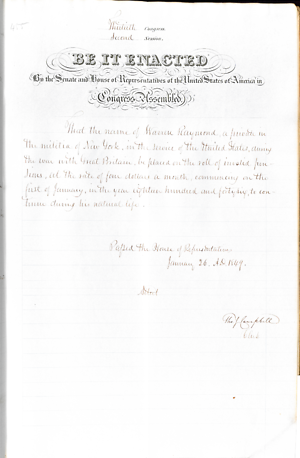 Thirtieth Congress
Second Session
BE IT ENACTED
By the Senate and House of Representatives of the United States of America in
Congress Assembled,
That the name of Warren Raymond, a private in
the militia of New York, in the service of the United States, during
the war with Great Britain, be placed on the roll of invalid pen-
sions, at the rate of four dollars a month, commencing on the
first of January, in the year eighteen hundred and forty six, to con-
tinue during his natural life.
Passed the House of Representatives
January 26. AD. 1849.
Attest
Tho. J Campbell
Clerk